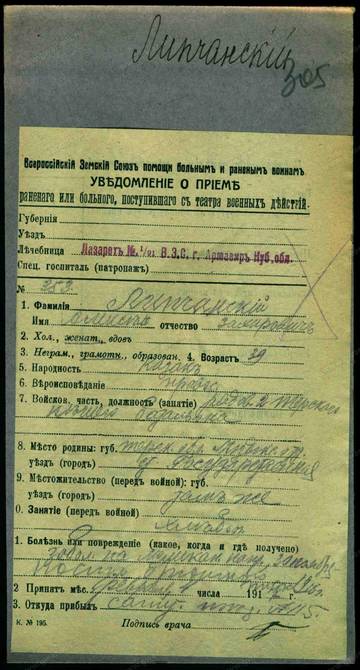 Липчанскій
305
Всероссійскій Земскій Союзъ помощи больнымъ и раненымъ воинамъ
УВѢДОМЛЕНІЕ О ПРІЕМѢ
раненаго или больного, поступившаго съ театра военныхъ дѣйствій.
Губернія
Уѣздъ
Лѣчебница Лазаретъ № 1/91 В.З.С. г. Армавиръ Куб. обл.
Спец. госпиталь (патронажъ)
№ 353
1. Фамилія Липчанскій
Имя отчество Захаровичъ
2. Хол., женат., вдовъ
3. Неграм., грамотн., образован. 4. Возрастъ 39
5. Народность казакъ
6. Вѣроисповѣданіе правос
7. Войсков. часть, должность (занятіе) Терскаго
8. Мѣсто родины: губ. Терск. обл.
уѣздъ (городъ) ст Государственная
9. Мѣстожительство (передъ войной): губ.
уѣздъ (городъ) тамъ же
0. Занятіе (передъ войной)
хлѣбоп
1. Болѣзнь или поврежденіе (какое, когда и гдѣ получено)
забол. на
2 Принятъ мѣс. числа 191 г.
3. Откуда прибылъ сани. №15.
К. № 195. Подпись врача